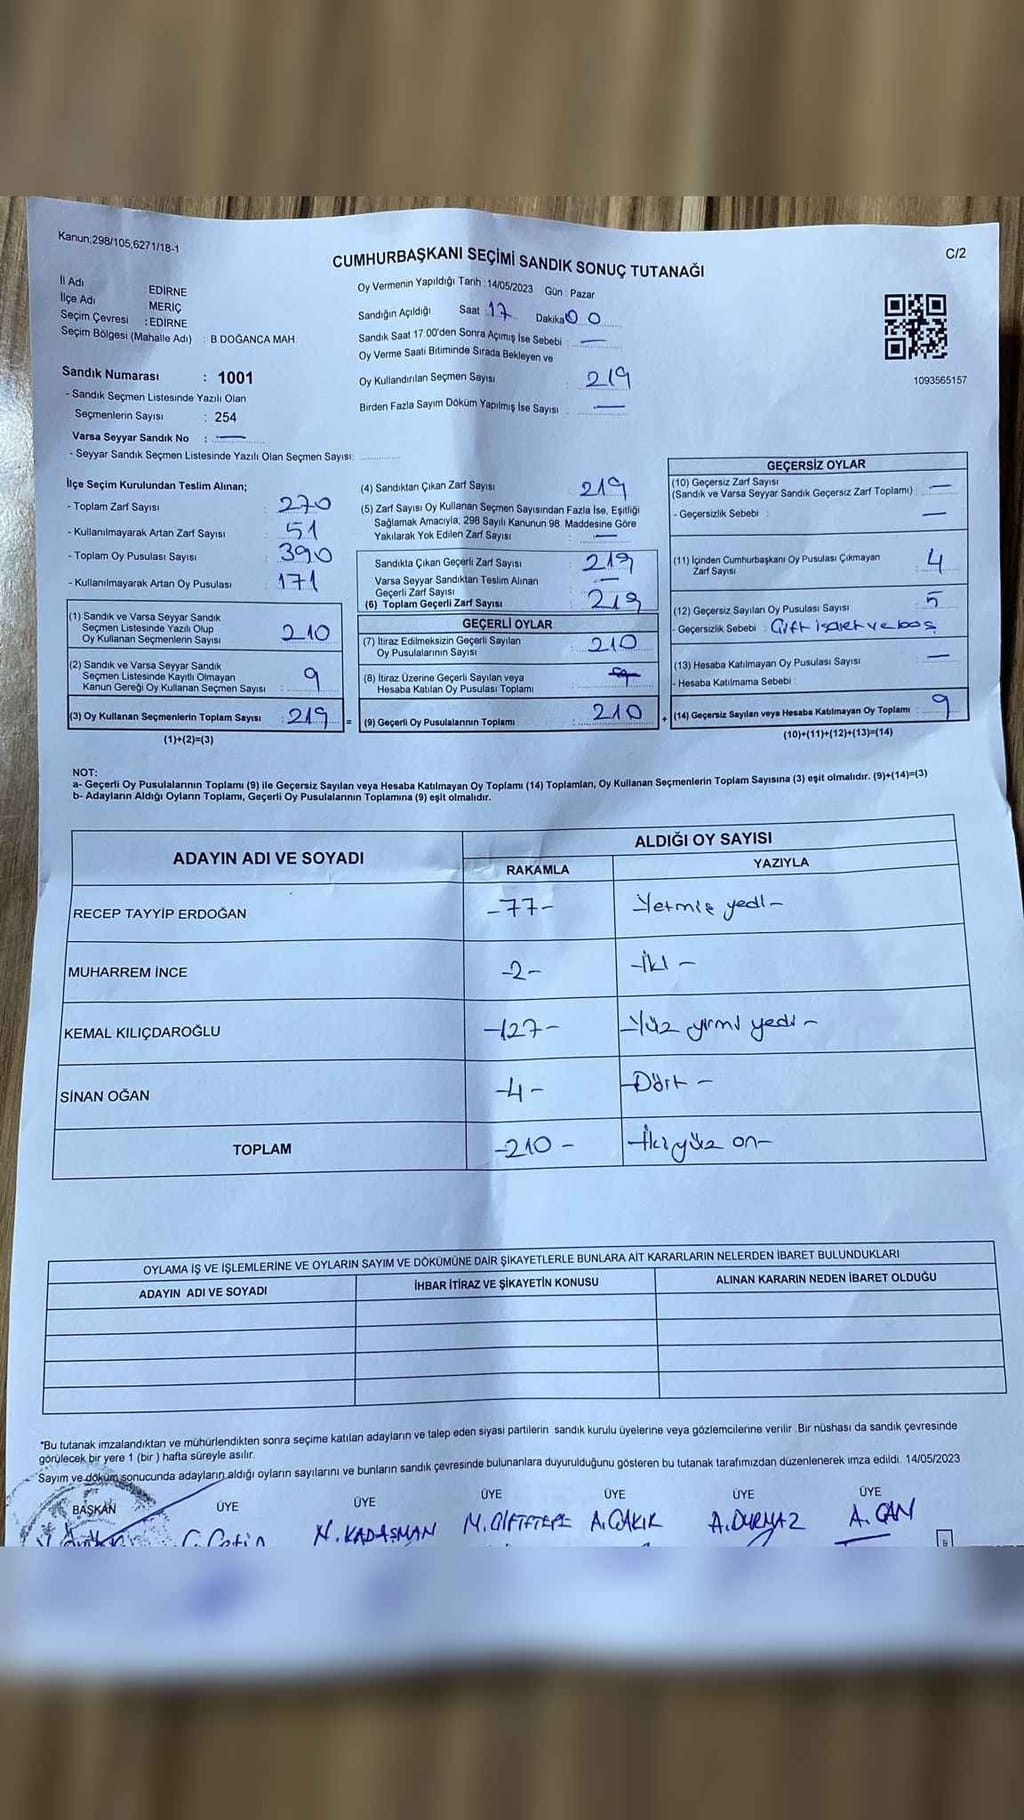 Kanun;298/105,6271/18-1
CUMHURBAŞKANI SEÇİMİ SANDIK SONUÇ TUTANAĞI
C/2
İl Adı : EDİRNE
İlçe Adı : MERİÇ
Seçim Çevresi : EDİRNE
Seçim Bölgesi (Mahalle Adı) : B.DOĞANCA MAH
Sandık Numarası : 1001
- Sandık Seçmen Listesinde Yazılı Olan
Seçmenlerin Sayısı : 254
Varsa Seyyar Sandık No : —
- Seyyar Sandık Seçmen Listesinde Yazılı Olan Seçmen Sayısı:
Oy Vermenin Yapıldığı Tarih :14/05/2023 Gün : Pazar
Sandığın Açıldığı Saat 17 Dakika 00
Sandık Saat 17:00'den Sonra Açımış İse Sebebi : —
Oy Verme Saati Bitiminde Sırada Bekleyen ve
Oy Kullandırılan Seçmen Sayısı : 219
Birden Fazla Sayım Döküm Yapılmış İse Sayısı : —
1093565157
İlçe Seçim Kurulundan Teslim Alınan;
- Toplam Zarf Sayısı : 270
- Kullanılmayarak Artan Zarf Sayısı : 51
- Toplam Oy Pusulası Sayısı : 390
- Kullanılmayarak Artan Oy Pusulası : 171
(1) Sandık ve Varsa Seyyar Sandık
Seçmen Listesinde Yazılı Olup
Oy Kullanan Seçmenlerin Sayısı : 210
(2) Sandık ve Varsa Seyyar Sandık
Seçmen Listesinde Kayıtlı Olmayan
Kanun Gereği Oy Kullanan Seçmen Sayısı : 9
(3) Oy Kullanan Seçmenlerin Toplam Sayısı : 219 =
(1)+(2)=(3)
(4) Sandıktan Çıkan Zarf Sayısı : 219
(5) Zarf Sayısı Oy Kullanan Seçmen Sayısından Fazla İse, Eşitliği
Sağlamak Amacıyla; 298 Sayılı Kanunun 98. Maddesine Göre
Yakılarak Yok Edilen Zarf Sayısı : —
Sandıkta Çıkan Geçerli Zarf Sayısı : 219
Varsa Seyyar Sandıktan Teslim Alınan
Geçerli Zarf Sayısı : —
(6) Toplam Geçerli Zarf Sayısı : 219
GEÇERLİ OYLAR
(7) İtiraz Edilmeksizin Geçerli Sayılan
Oy Pusulalarının Sayısı : 210
(8) İtiraz Üzerine Geçerli Sayılan veya
Hesaba Katılan Oy Pusulası Toplamı :
(9) Geçerli Oy Pusulalarının Toplamı : 210 +
GEÇERSİZ OYLAR
(10) Geçersiz Zarf Sayısı
(Sandık ve Varsa Seyyar Sandık Geçersiz Zarf Toplamı) : —
- Geçersizlik Sebebi : —
(11) İçinden Cumhurbaşkanı Oy Pusulası Çıkmayan
Zarf Sayısı : 4
(12) Geçersiz Sayılan Oy Pusulası Sayısı : 5
- Geçersizlik Sebebi : Çift işaret ve boş
(13) Hesaba Katılmayan Oy Pusulası Sayısı : —
- Hesaba Katılmama Sebebi :
(14) Geçersiz Sayılan veya Hesaba Katılmayan Oy Toplamı : 9
(10)+(11)+(12)+(13)=(14)
NOT:
a- Geçerli Oy Pusulalarının Toplamı (9) ile Geçersiz Sayılan veya Hesaba Katılmayan Oy Toplamı (14) Toplamları, Oy Kullanan Seçmenlerin Toplam Sayısına (3) eşit olmalıdır. (9)+(14)=(3)
b- Adayların Aldığı Oyların Toplamı, Geçerli Oy Pusulalarının Toplamına (9) eşit olmalıdır.
ADAYIN ADI VE SOYADI
ALDIĞI OY SAYISI
RAKAMLA
YAZIYLA
RECEP TAYYİP ERDOĞAN -77- Yetmiş yedi -
MUHARREM İNCE -2- -İki -
KEMAL KILIÇDAROĞLU -127- -Yüz yirmi yedi -
SİNAN OĞAN -4- -Dört -
TOPLAM -210- -İkiyüz on-
OYLAMA İŞ VE İŞLEMLERİNE VE OYLARIN SAYIM VE DÖKÜMÜNE DAİR ŞİKAYETLERLE BUNLARA AİT KARARLARIN NELERDEN İBARET BULUNDUKLARI
ADAYIN ADI VE SOYADI
İHBAR İTİRAZ VE ŞİKAYETİN KONUSU
ALINAN KARARIN NEDEN İBARET OLDUĞU
*Bu tutanak imzalandıktan ve mühürlendikten sonra seçime katılan adayların ve talep eden siyasi partilerin sandık kurulu üyelerine veya gözlemcilerine verilir. Bir nüshası da sandık çevresinde
görülecek bir yere 1 (bir ) hafta süreyle asılır.
Sayım ve döküm sonucunda adayların aldığı oyların sayılarını ve bunların sandık çevresinde bulunanlara duyurulduğunu gösteren bu tutanak tarafımızdan düzenlenerek imza edildi. 14/05/2023
BAŞKAN ÜYE ÜYE ÜYE ÜYE ÜYE ÜYE
N. KADAŞMAN M. ÇİFTTEPE A. ÇAKIR A. DURMAZ A. ÇAN